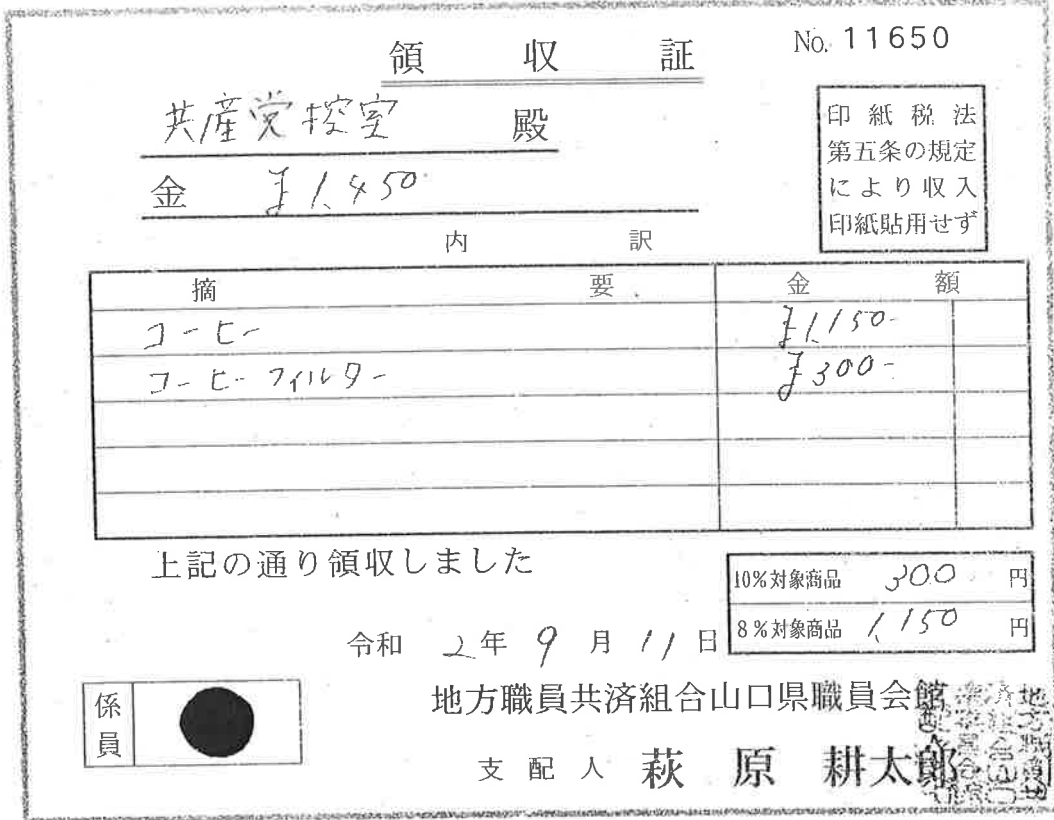 領収証 No. 11650
共産党控室 殿
印紙税法
第五条の規定
により収入
印紙貼用せず
金 ¥1,450
内訳
摘要 金額
コーヒー ¥1,150-
コーヒーフィルター ¥300-
上記の通り領収しました
10%対象商品 300 円
8%対象商品 1,150 円
令和 2年 9月 11日
係員
地方職員共済組合山口県職員会館
支配人 萩原耕太郎